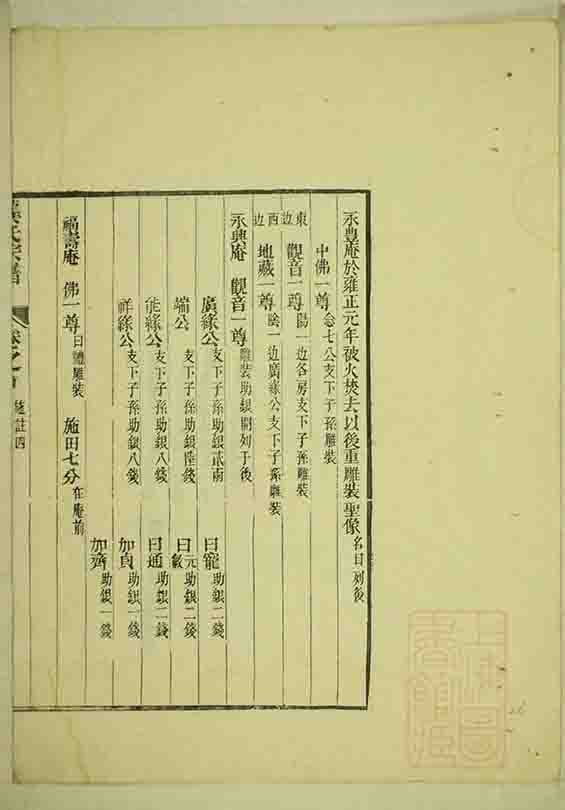 永豐庵於雍正元年被火焚去以後重雕裝聖像名目列後
中佛一尊念七公支下子孫雕裝
東边觀音一尊陽一边各房支下子孫雕裝
西边地藏一尊陰一边廣緣公支下子孫雕裝
永興庵 觀音一尊雕裝助銀開列于後
廣緣公支下子孫助銀貳兩 曰寵助銀二錢
端公支下子孫助銀陸錢 曰元敏助銀二錢
能緣公支下子孫助銀八錢 曰通助銀二錢
祥緣公支下子孫助銀八錢 加良助銀一錢
加齊助銀一錢
福壽庵 佛一尊曰雕裝 施田七分在庵前
氏宗譜 卷之 誌四
上海圖書館藏